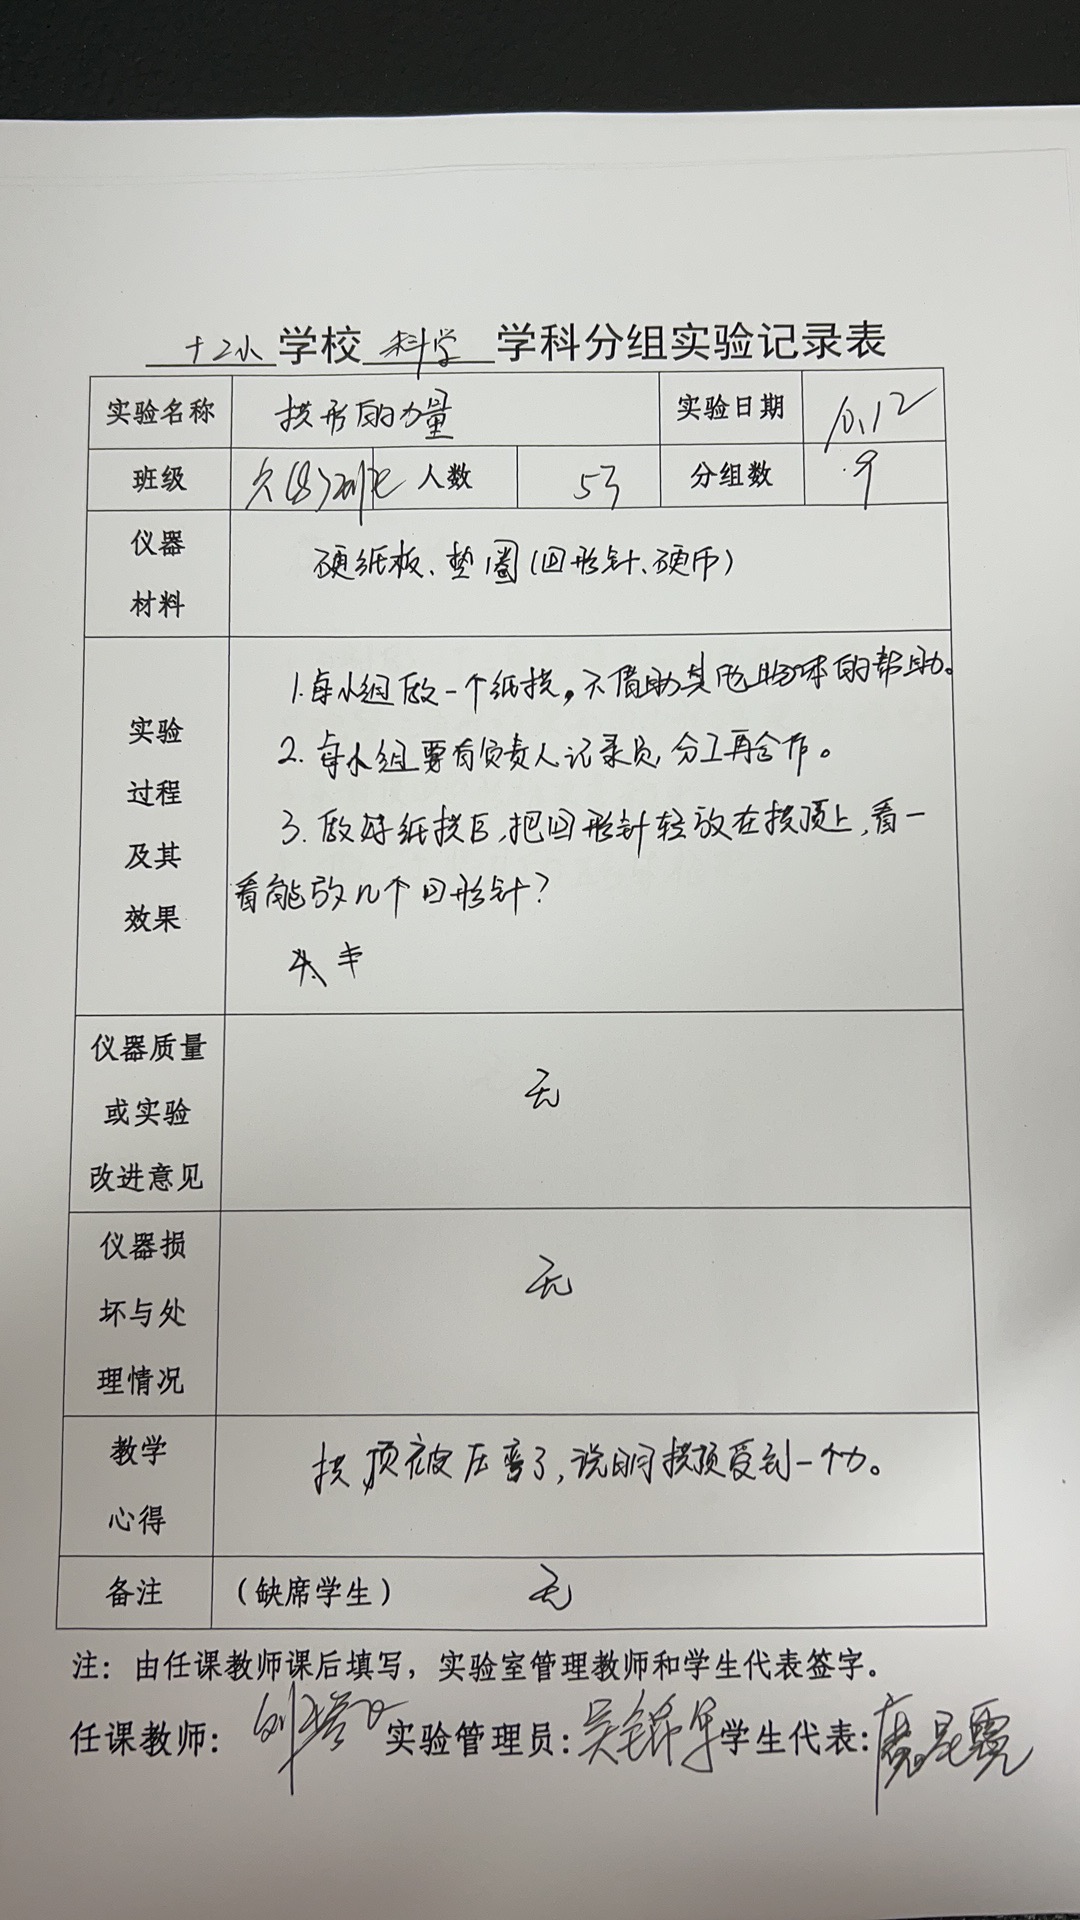 十二小学校科学学科分组实验记录表
实验名称 拱形的力量 实验日期 10.12
班级 六(8) 人数 53 分组数 9
仪器
材料
硬纸板、垫圈(回形针、硬币)
实验
过程
及其
效果
1.每小组做一个纸拱,不借助其它物体的帮助。
2.每小组要有负责人记录员,分工再合作。
3.做好纸拱后,把回形针轻放在拱顶上,看一
看能放几个回形针?
仪器质量
或实验
改进意见
无
仪器损
坏与处
理情况
无
教学
心得
拱顶被压弯了,说明拱顶受到一个力。
备注 (缺席学生) 无
注:由任课教师课后填写,实验室管理教师和学生代表签字。
任课教师: 实验管理员: 学生代表: